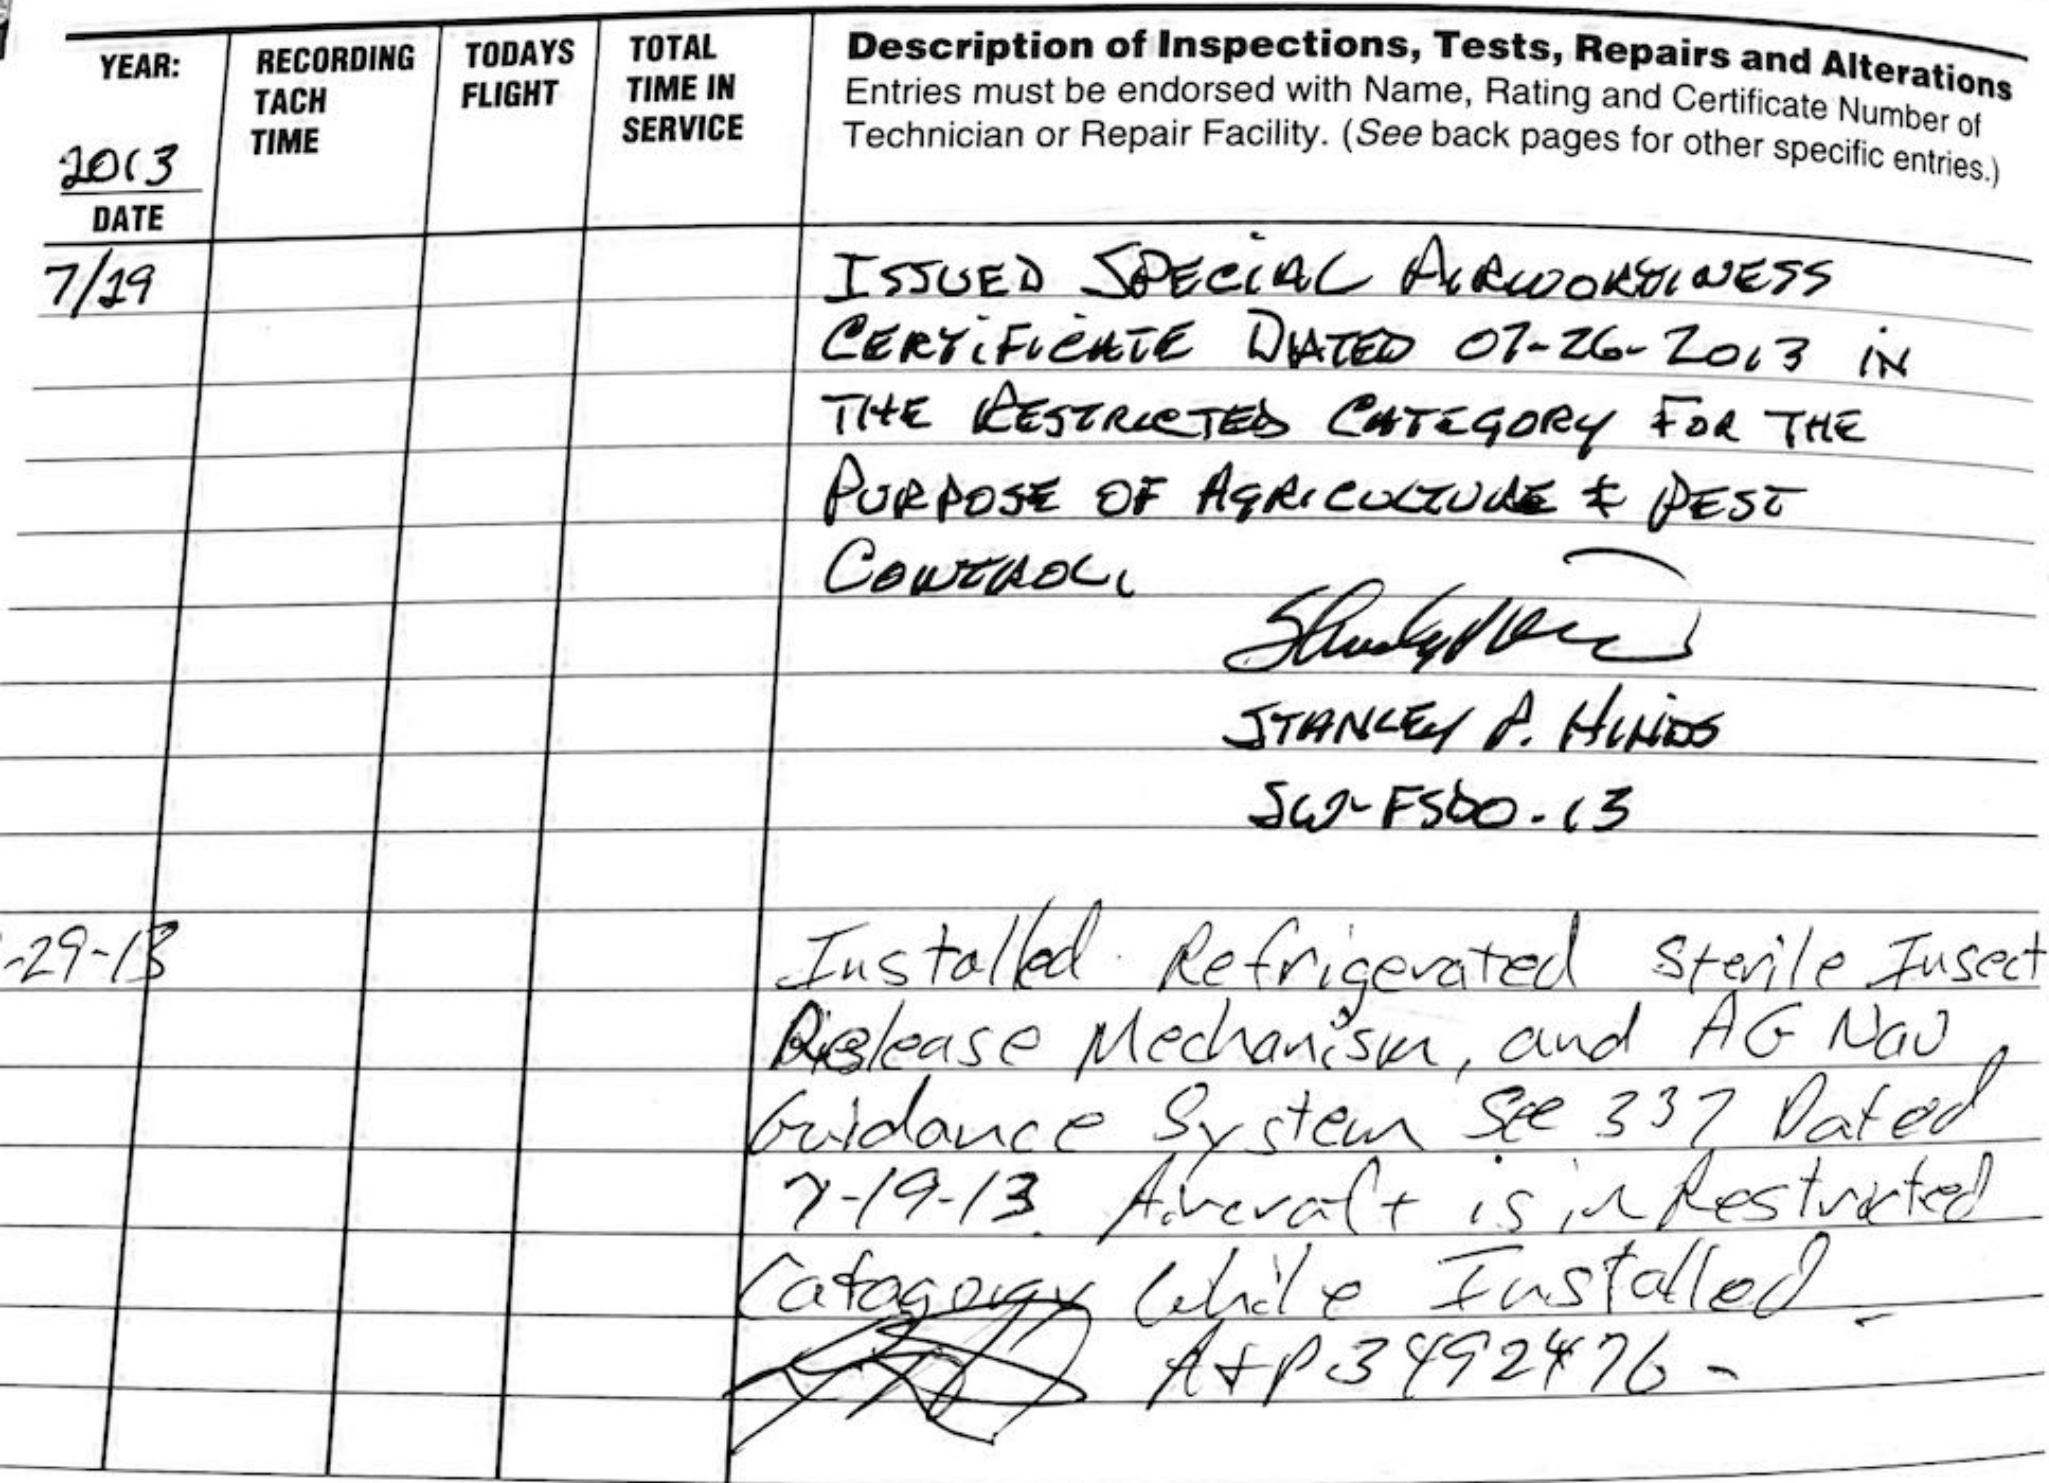 YEAR:
2013
DATE
RECORDING
TACH
TIME
TODAYS
FLIGHT
TOTAL
TIME IN
SERVICE
Description of Inspections, Tests, Repairs and Alterations
Entries must be endorsed with Name, Rating and Certificate Number of
Technician or Repair Facility. (See back pages for other specific entries.)
7/29
ISSUED SPECIAL AIRWORTHINESS
CERTIFICATE DATED 07-26-2013 IN
THE RESTRICTED CATEGORY FOR THE
PURPOSE OF AGRICULTURE & PEST
CONTROL.
STANLEY P. HINDS
SW-FSDO-13
-29-13
Installed Refrigerated Sterile Insect
Release Mechanism, and AG Nav
Guidance System See 337 Dated
7-19-13. Aircraft is in Restricted
Catagory While Installed
A+P 3492476-